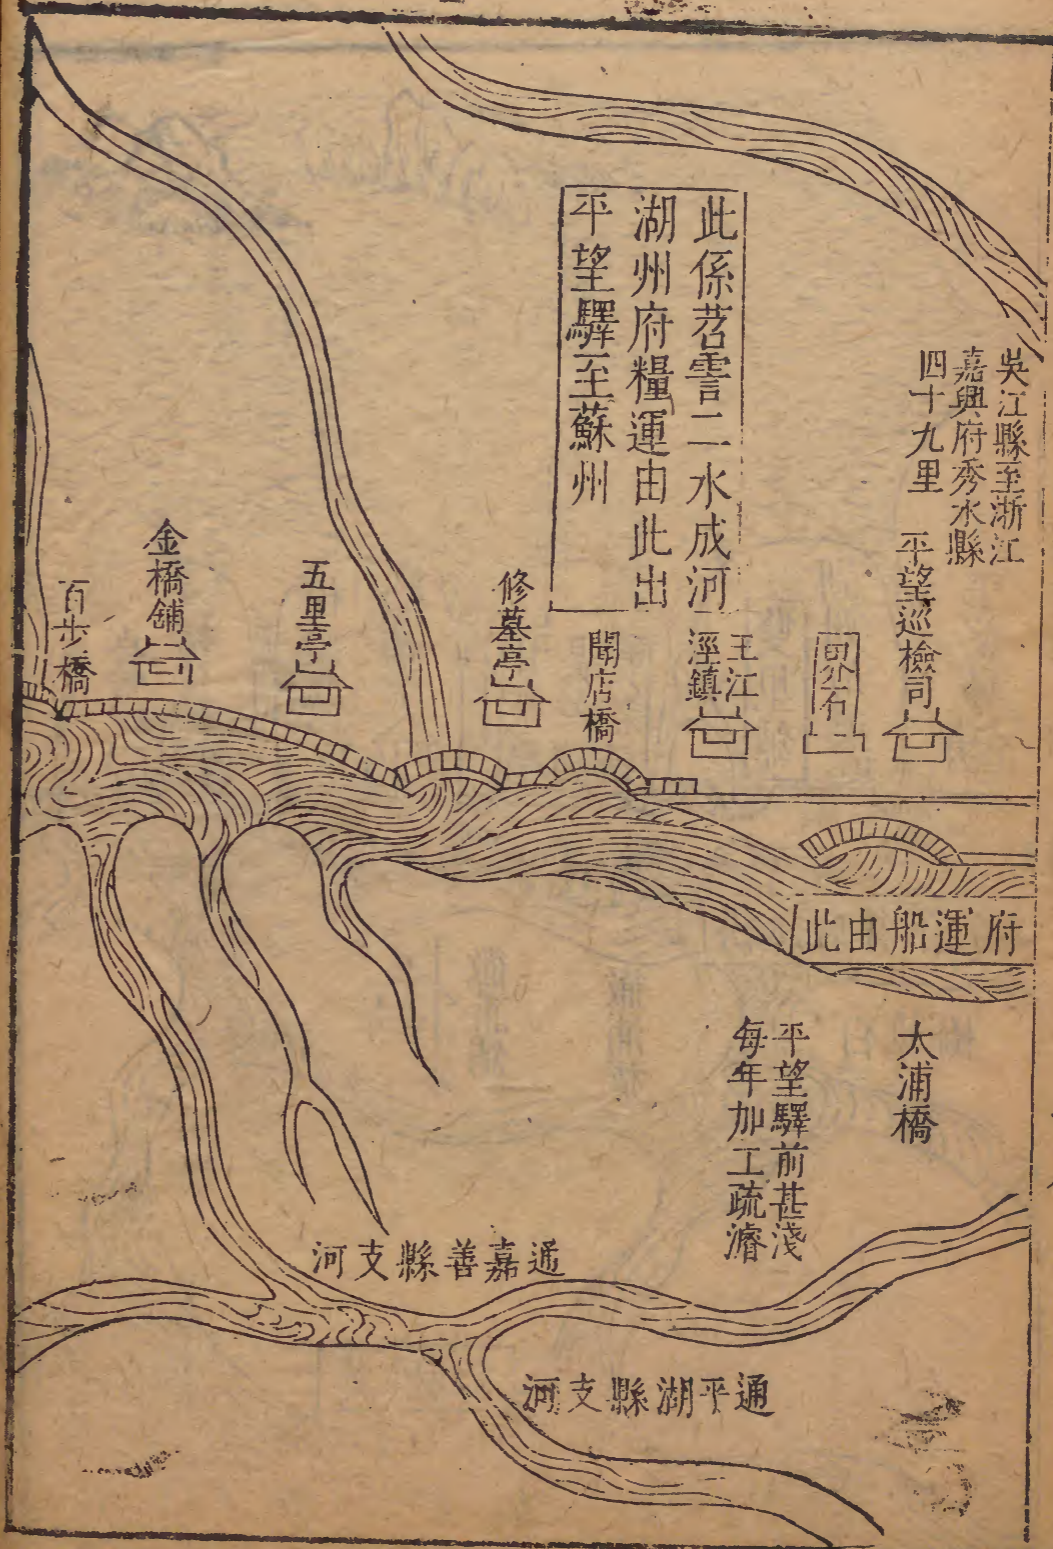 吳江縣至浙江
嘉興府秀水縣
四十九里
平望巡檢司
界石
王江
涇鎮
此係苕霅二水成河
湖州府糧運由此出
平望驛至蘇州
聞店橋
修墓亭
五里亭
金橋舖
百步橋
府運船由此
太浦橋
平望驛前甚淺
每年加工疏濬
通嘉善縣支河
通平湖縣支河